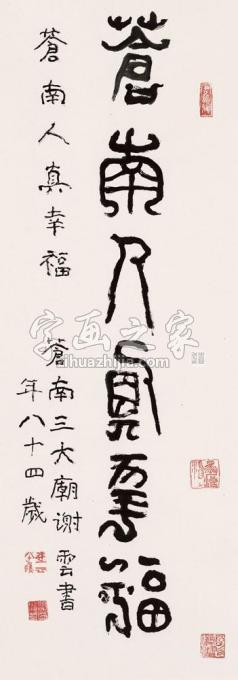 蒼南人真幸福
蒼南人真幸福
蒼南三大廟谢雲書
年八十四歲
字画之家
zihuazhijia.com